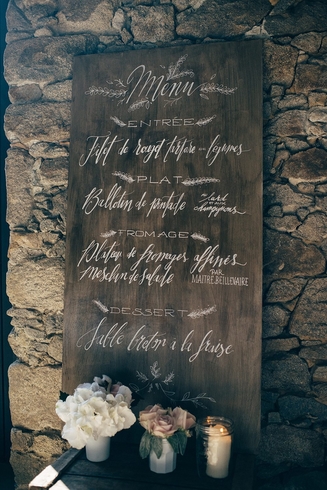 Menu
ENTRÉE
Filet de rouget tartare de légumes
PLAT
Ballotin de pintade au lard
et aux
champignons
FROMAGE
Plateau de fromages affinés
Mesclun de salade PAR
MAITRE BELLEVAIRE
DESSERT
Sablé breton à la fraise